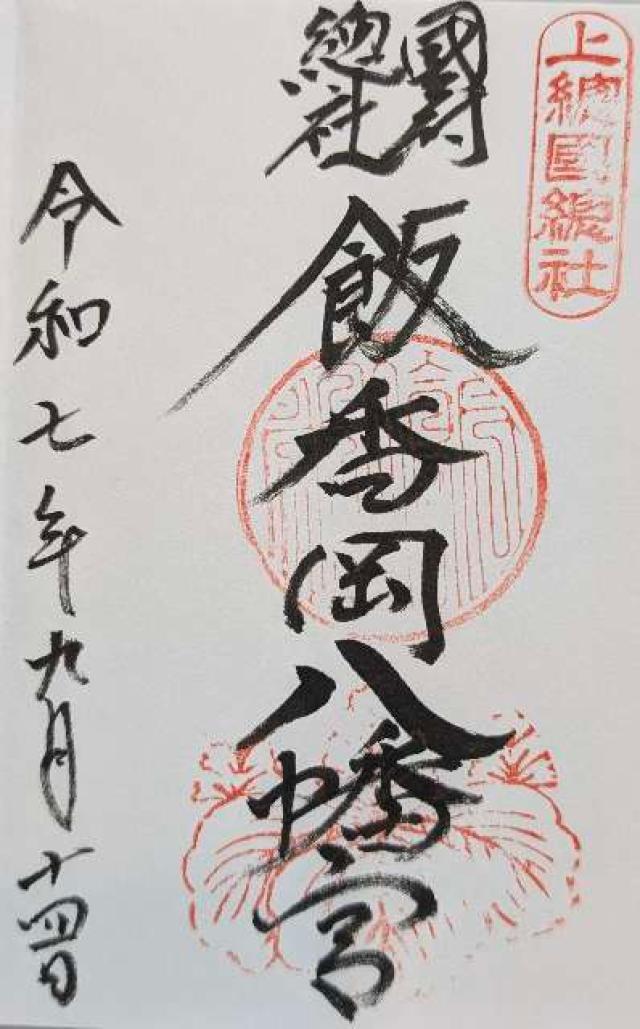 上總國總社
國府
總社
飯香岡八幡宮
令和七年九月十四日